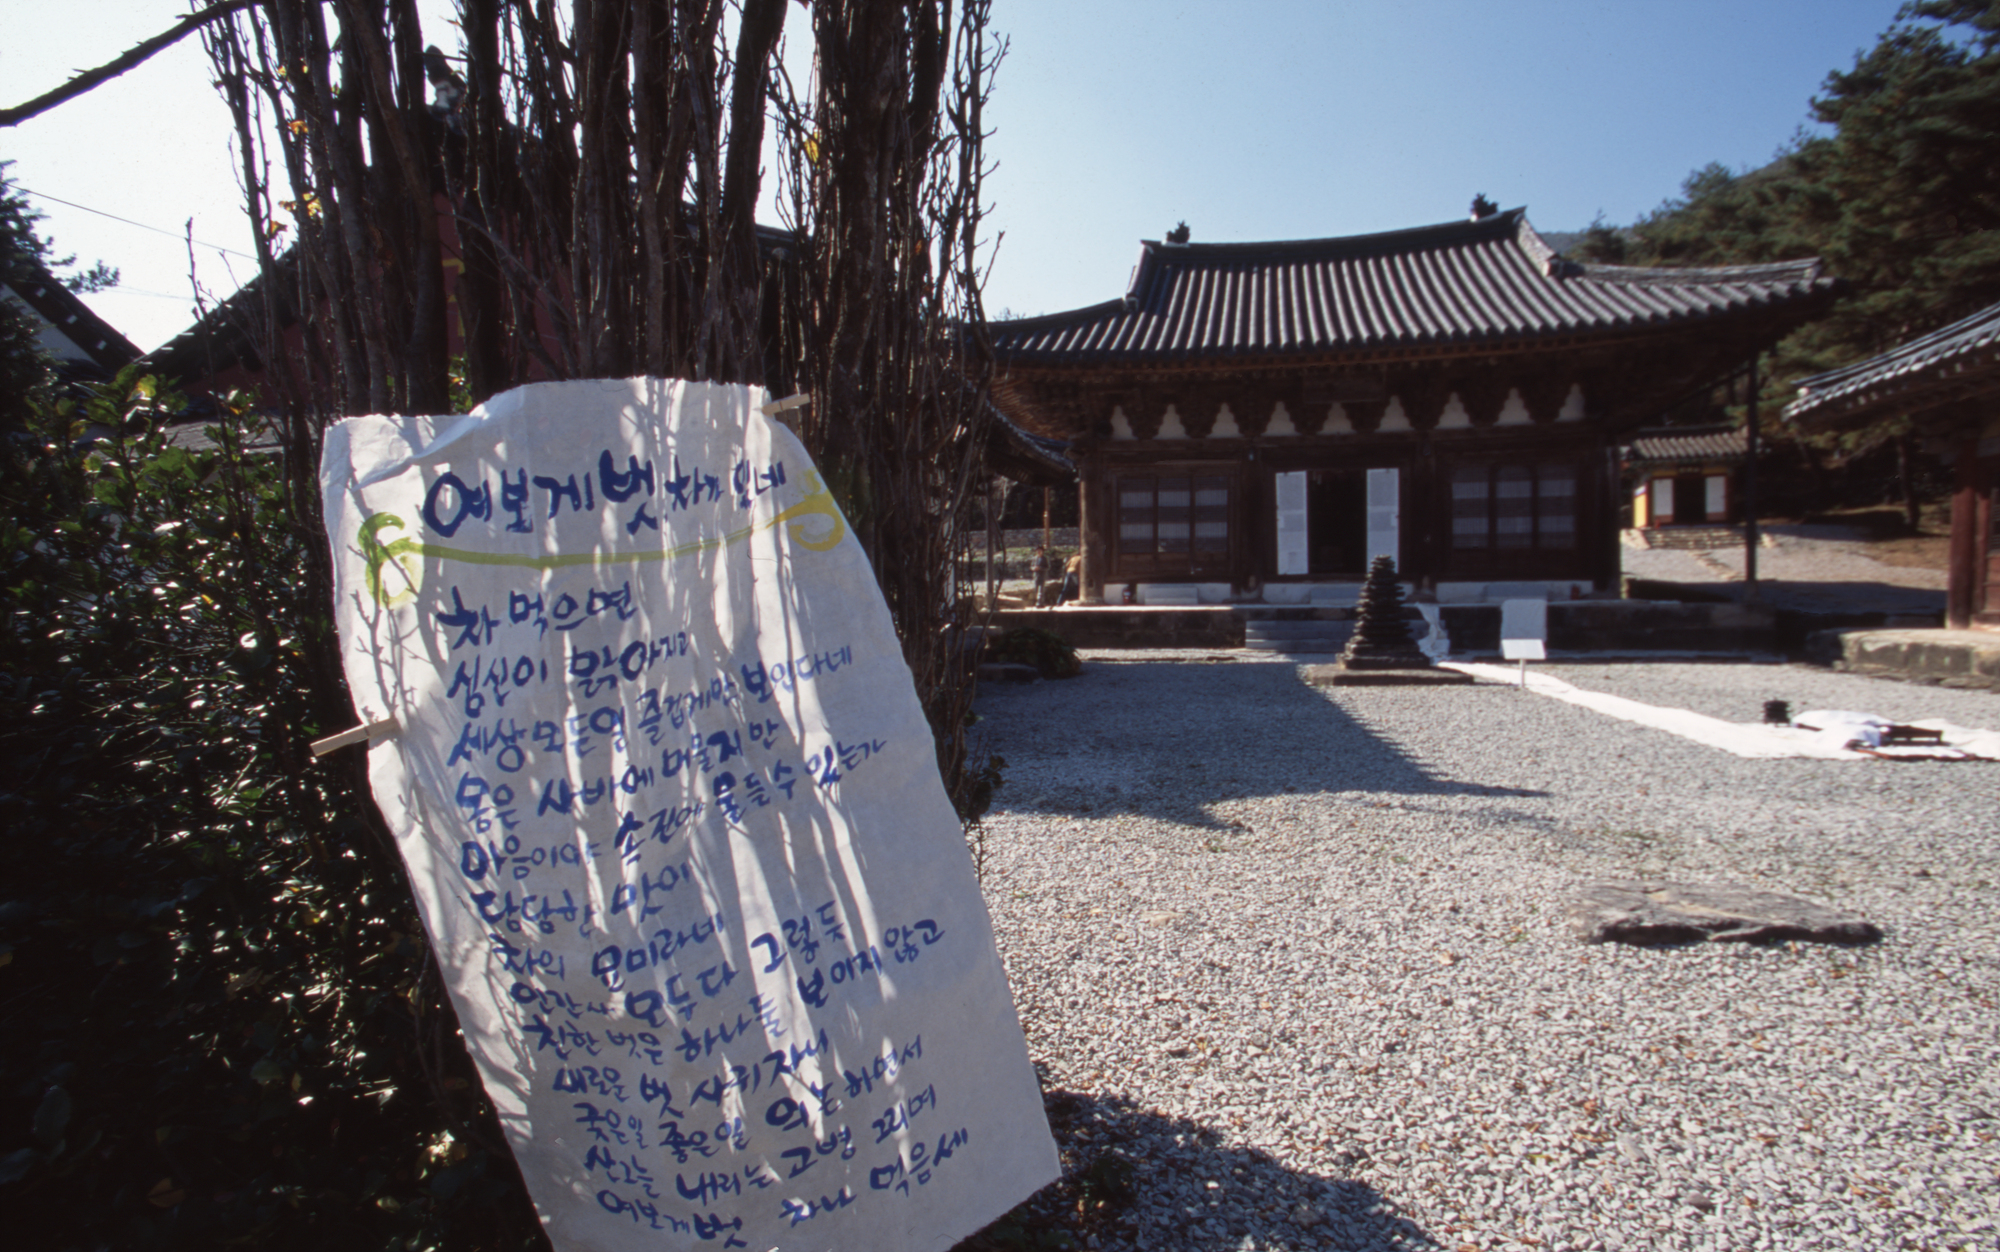 여보게 벗, 차가 있네
차 먹으면
심신이 맑아지고
세상 모든 일 즐겁게만 보인다네
몸은 사바에 머물지만
마음이야 속진에 물들 수 있는가
담담한 맛이
차의 묘미라네
인간사 모두 다 그렇듯
친한 벗은 하나 둘 보이지 않고
새로운 벗 사귀자니
궂은일 좋은일 의논하면서
산그늘 내리는 고병 그리며
여보게 벗 차나 먹음세